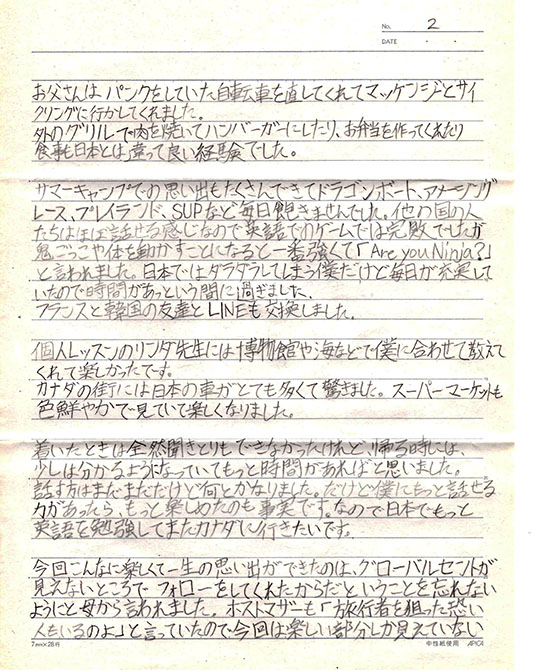 No. 2
DATE ・ ・
お父さんは パンクをしていた自転車を直してくれてマッケンジーとサイ
クリングに行かしてくれました。
外のグリルで肉を焼いてハンバーガーにしたり、お弁当を作ってくれたり
食事も日本とは違って良い経験でした。
サマーキャンプでの思い出もたくさんできてドラゴンボート、アメージング
レース、プレイランド、SUPなど毎日飽きませんでした。他の国の人
たちはほぼ話せる感じなので英語でのゲームでは完敗でしたが
鬼ごっこや体を動かすことになると一番強くて「Are you Ninja?」
と言われました。日本ではダラダラしてしまう僕だけど毎日が充実して
いたので時間があっという間に過ぎました、
フランスと韓国の友達とLINEも交換しました。
個人レッスンのリンダ先生には博物館や海などで僕に合わせて教えて
くれて楽しかったてす。
カナダの街には日本の車がとても多くて驚きました。スーパーマーケットも
色鮮やかで見ていて楽しくなりました。
着いたときは全然聞きとりもできなかったけれど、帰る時には、
少しは分かるようになっていてもっと時間があればと思いました。
話す方はまだまだだけど何とかなりました。だけど僕にもっと話せる
力があったら、もっと楽しめたのも事実です。なので日本でもっと
英語を勉強してまたカナダに行きたいです。
今回こんなに楽しくて一生の思い出ができたのは、グローバルセントが
見えないところでフォローをしてくれたからだということを忘れない
ようにと母から言われました。ホストマザーも「旅行者を狙った恐い
人もいるのよ」と言っていたので今回は楽しい部分しか見えていない
7mm×26行 中性紙使用 APICA